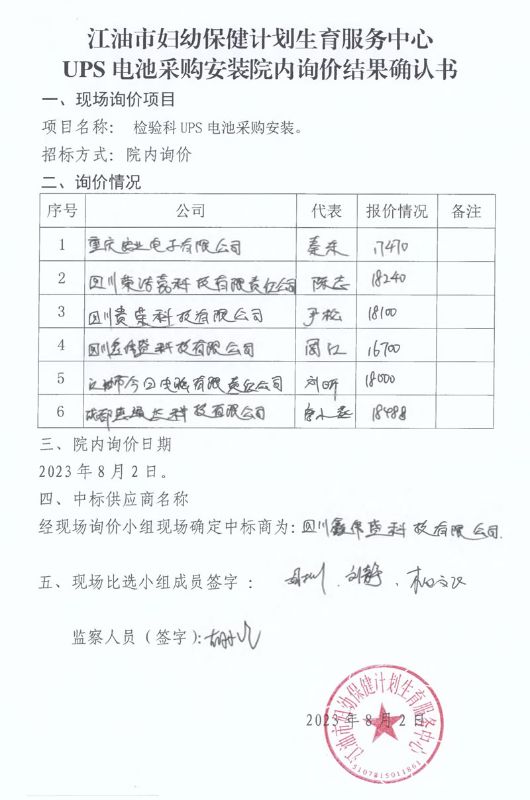 江油市妇幼保健计划生育服务中心
UPS 电池采购安装院内询价结果确认书
一、现场询价项目
项目名称： 检验科 UPS 电池采购安装。
招标方式：院内询价
二、询价情况
序号 公司 代表 报价情况 备注
1 重庆 业电子有限公司 17470
2 四川荣浩嘉科技有限责任公司 陈志 18240
3 四川贵荣科技有限公司 尹松 18100
4 四川鑫伟盛科技有限公司 周红 16700
5 江油市今日电脑有限责任公司 刘昕 18000
6 成都 科技有限公司 18488
三、院内询价日期
2023 年 8 月 2 日。
四、中标供应商名称
经现场询价小组现场确定中标商为：四川鑫伟盛科技有限公司.
五、现场比选小组成员签字 ： 刘静 、
监察人员（签字）：
2023 年 8 月 2 日
江油市妇幼保健计划生育服务中心
5107815011861